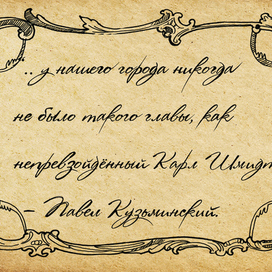 ... у нашего города никогда
не было такого главы, как
непревзойдённый Карл Шмидт
– Павел Кузьминский.